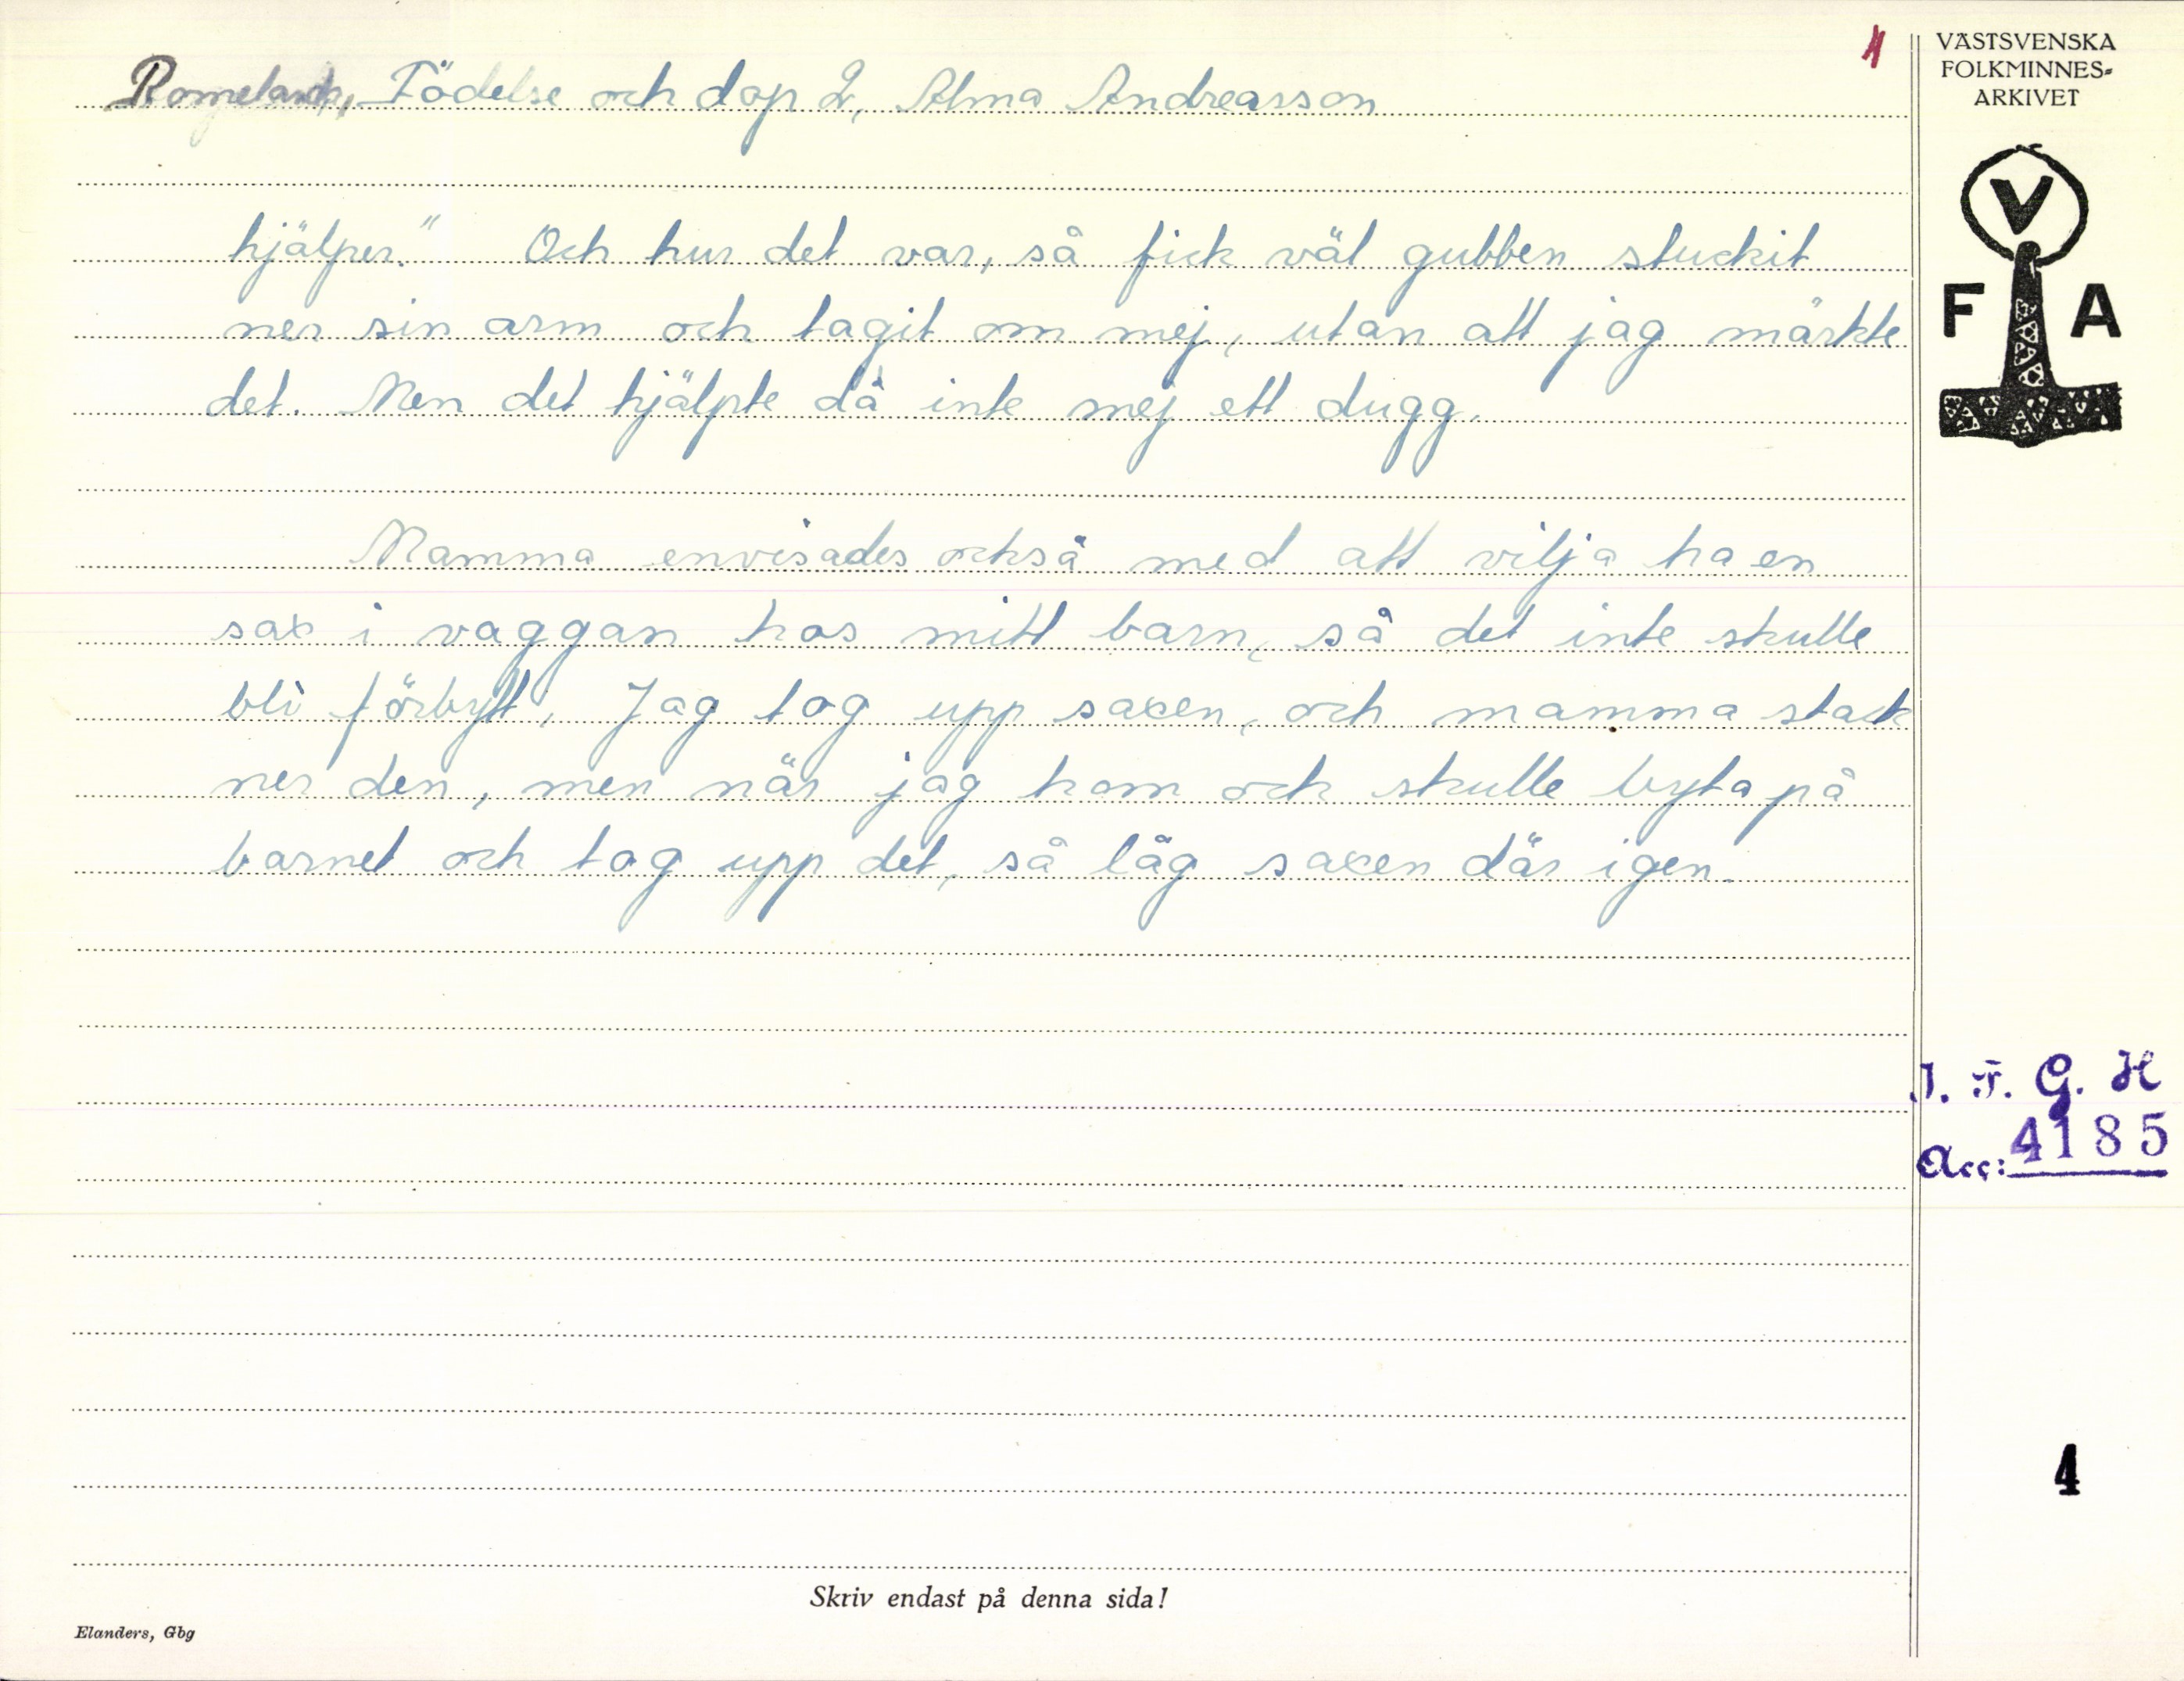 1
VÄSTSVENSKA
FOLKMINNES-
ARKIVET
V
F A
Romelanda, Födelse och dop 2, Alma Andreasson
hjälper." Och hur det var, så fick väl gubben stuckit
ner sin arm och tagit om mej, utan att jag märkte
det. Men det hjälpte då inte mej ett dugg.
Mamma envisades också med att vilja ha en
sax i vaggan hos mitt barn, så det inte skulle
bli förbytt. Jag tog upp saxen, och mamma stack
ner den, men när jag kom och skulle byta på
barnet och tog upp det, så låg saxen där igen.
I. F. G. H
Acc: 4185
4
Skriv endast på denna sida!
Elanders, Gbg